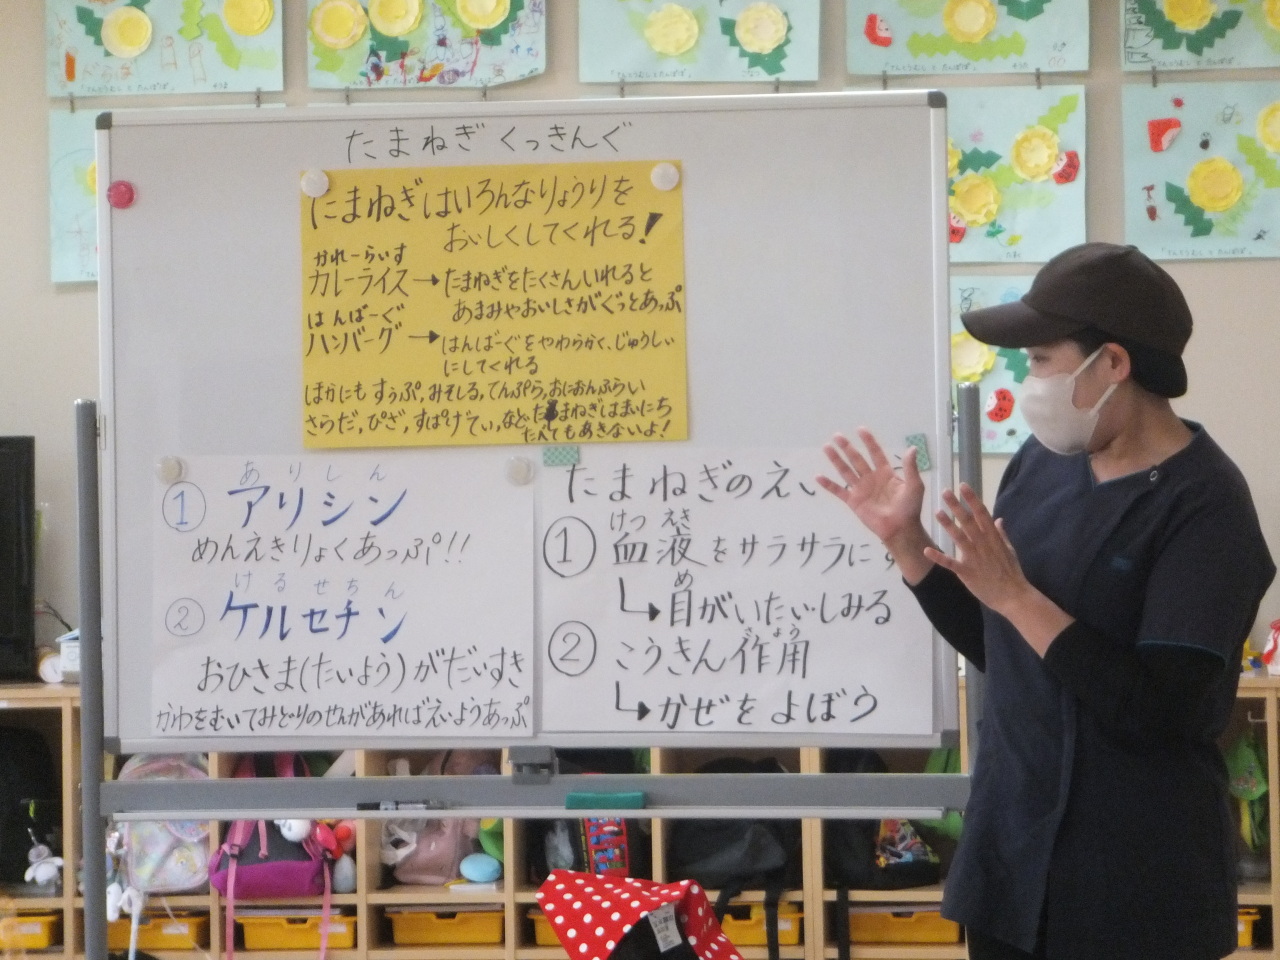 たまねぎくっきんぐ
たまねぎはいろんなりょうりを
おいしくしてくれる!
かれーらいす
カレーライス→たまねぎをたくさんいれると
あまみやおいしさがぐっとあっぷ
はんばーぐ
ハンバーグ→はんばーぐをやわらかく、じゅうしぃ
にしてくれる
ほかにもすぅぷ,みそしる,てんぷら,おにおんふらい
さらだ,ぴざ,すぱげてぃ,など たまねぎはまいにち
たべてもあきないよ!
ありしん
① アリシン
めんえきりょくあっぷ!!
けるせちん
② ケルセチン
おひさま(たいよう)がだいすき
かわをむいてみどりのせんがあればえいようあっぷ
たまねぎのえい
けつえき
① 血液をサラサラにす
め
↳目がいたい、しみる
さよう
② こうきん作用
↳かぜをよぼう